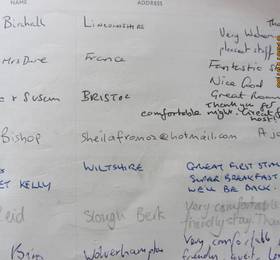 NAME ADDRESS
Birchall LINCOLNSHIRE The
Very Welcom
pleasant staff
Mrs Dune France Fantastic S
Nice food
& Susan BRISTOL Great Room
Thank you for
comfortable night. Great
Bishop sheilafromoz@hotmail.com A jo
WILTSHIRE GREAT FIRST STOP
SUPER BREAKFAST
ET KELLY WE'LL BE BACK
eid Slough Berk Very comfortable
friendly stay. Than
Wolverhampton Very comfortable
friendly